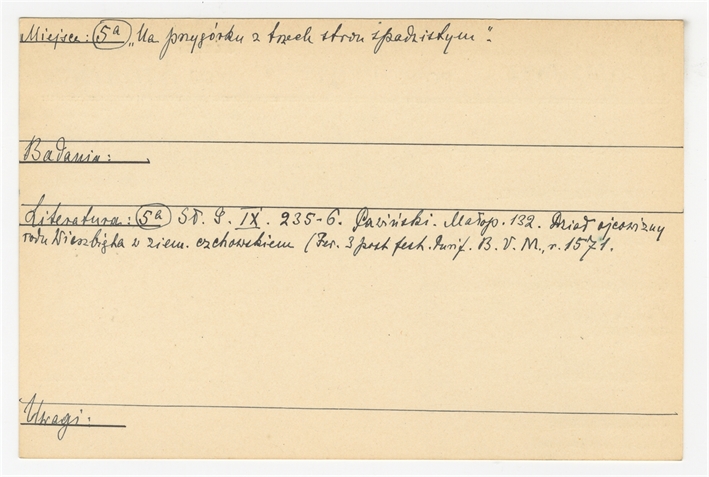 Miejsce: 5a „Na przygórku z trzech stron spadzistym".
Badania:
Literatura: 5a Sł. G. IX. 235-6. Pawiński. Małop. 132. Dział ojcowizny
rodu Wieszbięta w ziem. czchowskiem (Fer. 3 post fest. Purif. B. V. M., r. 1571.
Uwagi: